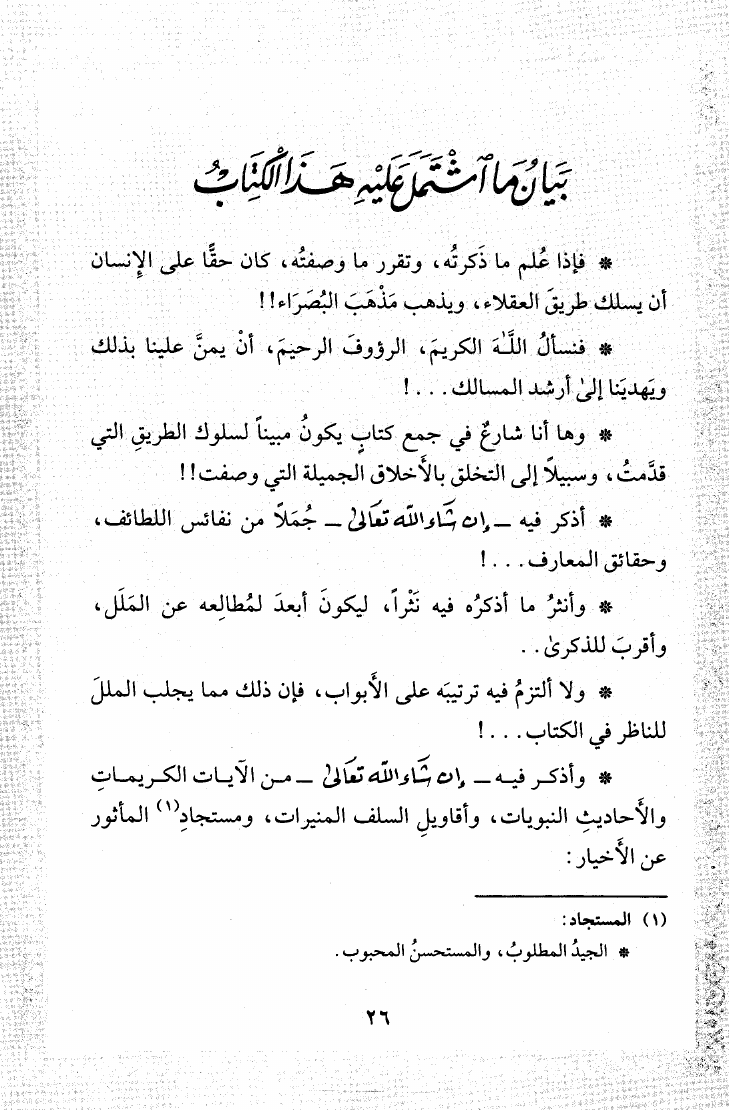 بَيَانُ مَا ٱشْتَمَلَ عَلَيْهِ هَذَا الْكِتَابُ
* فإذا عُلم ما ذَكرتُه، وتقرر ما وصفتُه، كان حقًّا على الإنسان
أن يسلك طريقَ العقلاء، ويذهب مَذْهَبَ البُصَرَاء!!
* فنسألُ اللَّـهَ الكريمَ، الرؤوفَ الرحيمَ، أنْ يمنَّ علينا بذلك
ويَهديَنا إلىٰ أرشد المسالك...!
* وها أنا شارعٌ في جمع كتابٍ يكونُ مبيناً لسلوك الطريقِ التي
قدَّمتُ، وسبيلاً إلى التخلق بالأخلاق الجميلة التي وصفت!!
* أذكر فيه ـ إن شَاءَ اللّه تعَالىٰ ـ جُمَلاً من نفائس اللطائف،
وحقائق المعارف...!
* وأنثرُ ما أذكرُه فيه نَثْراً، ليكونَ أبعدَ لمُطالِعه عن المَلَل،
وأقربَ للذكرىٰ..
* ولا ألتزمُ فيه ترتيبَه على الأبواب، فإن ذلك مما يجلب المللَ
للناظر في الكتاب...!
* وأذكر فيه ـ إن شَاءَ اللّه تعَالىٰ ـ من الآيات الكريماتِ
والأحاديثِ النبويات، وأقاويلِ السلف المنيرات، ومستجادِ(١) المأثور
عن الأخيار:
(١) المستجاد:
* الجيدُ المطلوبُ، والمستحسنُ المحبوب.
٢٦